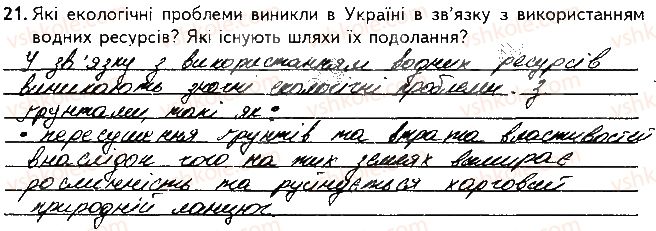 21. Які екологічні проблеми виникли в Україні в зв'язку з використанням
водних ресурсів? Які існують шляхи їх подолання?
У зв'язку з використанням водних ресурсів
виникають значні екологічні проблеми з
ґрунтами, такі як:
• пересушення ґрунтів та втрата властивостей
внаслідок чого на тих землях вимирає
рослинність та руйнується харговий
природній ланцюг.